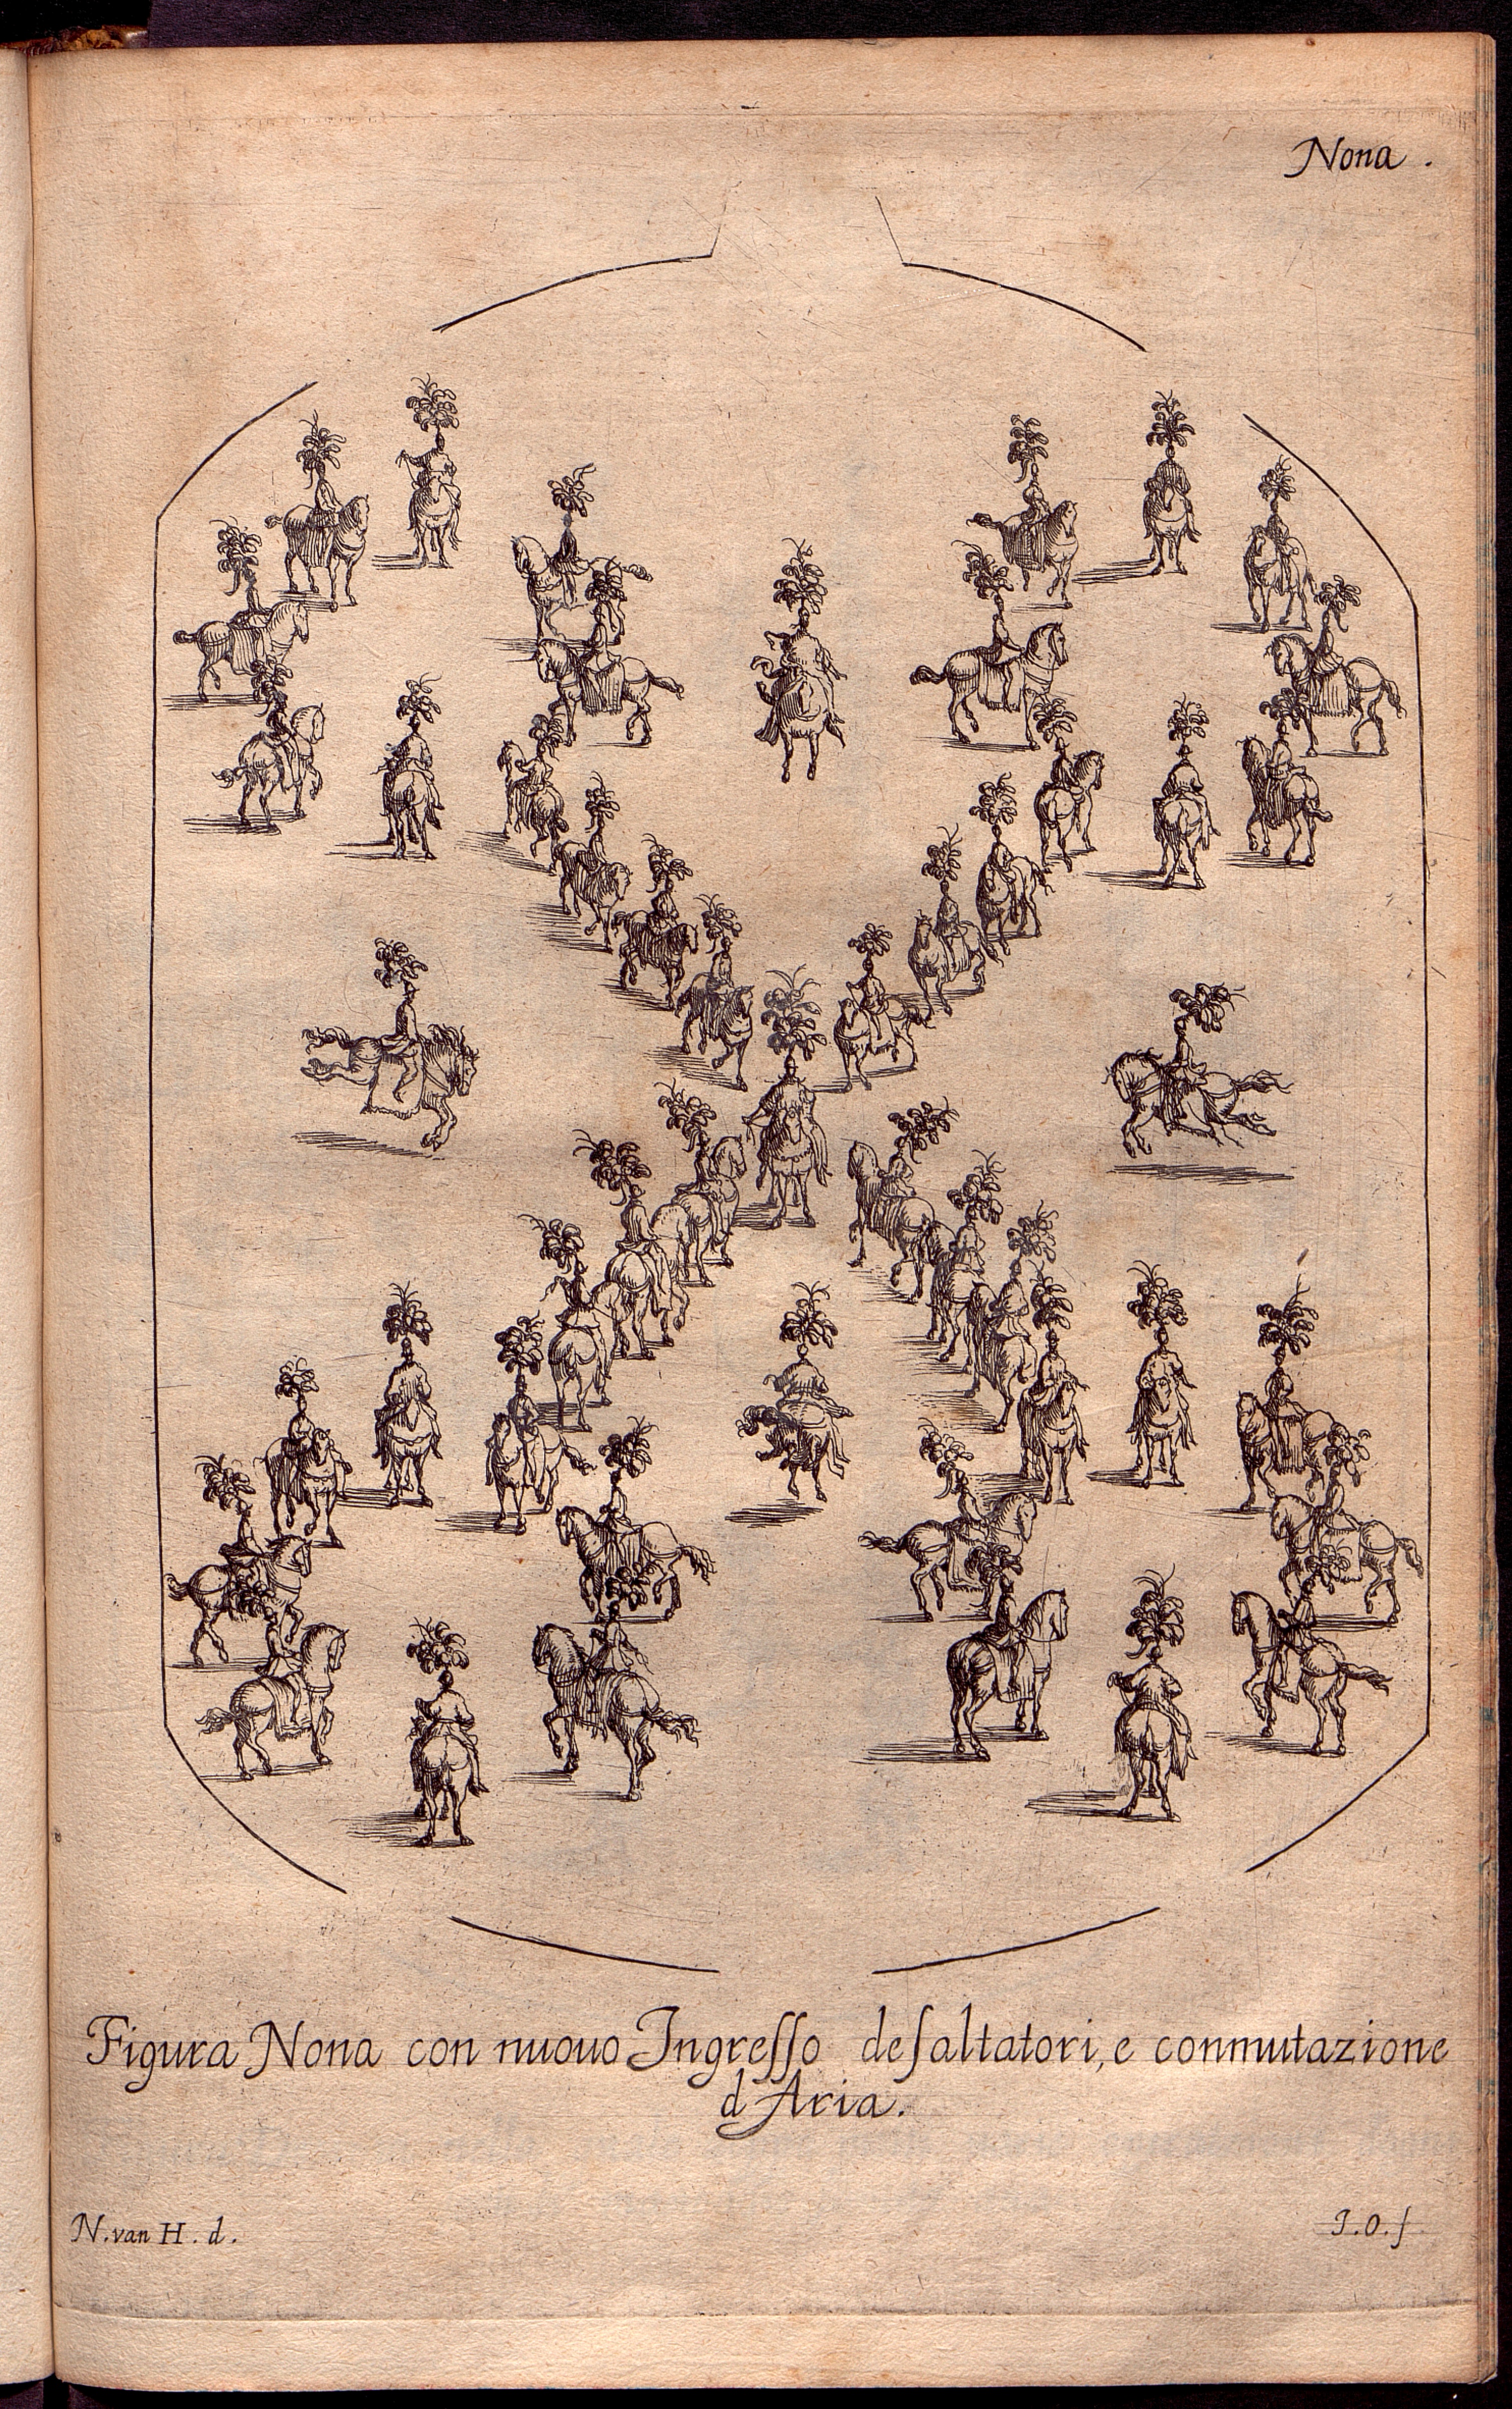 Nona .
Figura Nona con nuouo Ingreſſo deſaltatori, e conmutazione
d Aria.
N. van H. d.
J. O. f